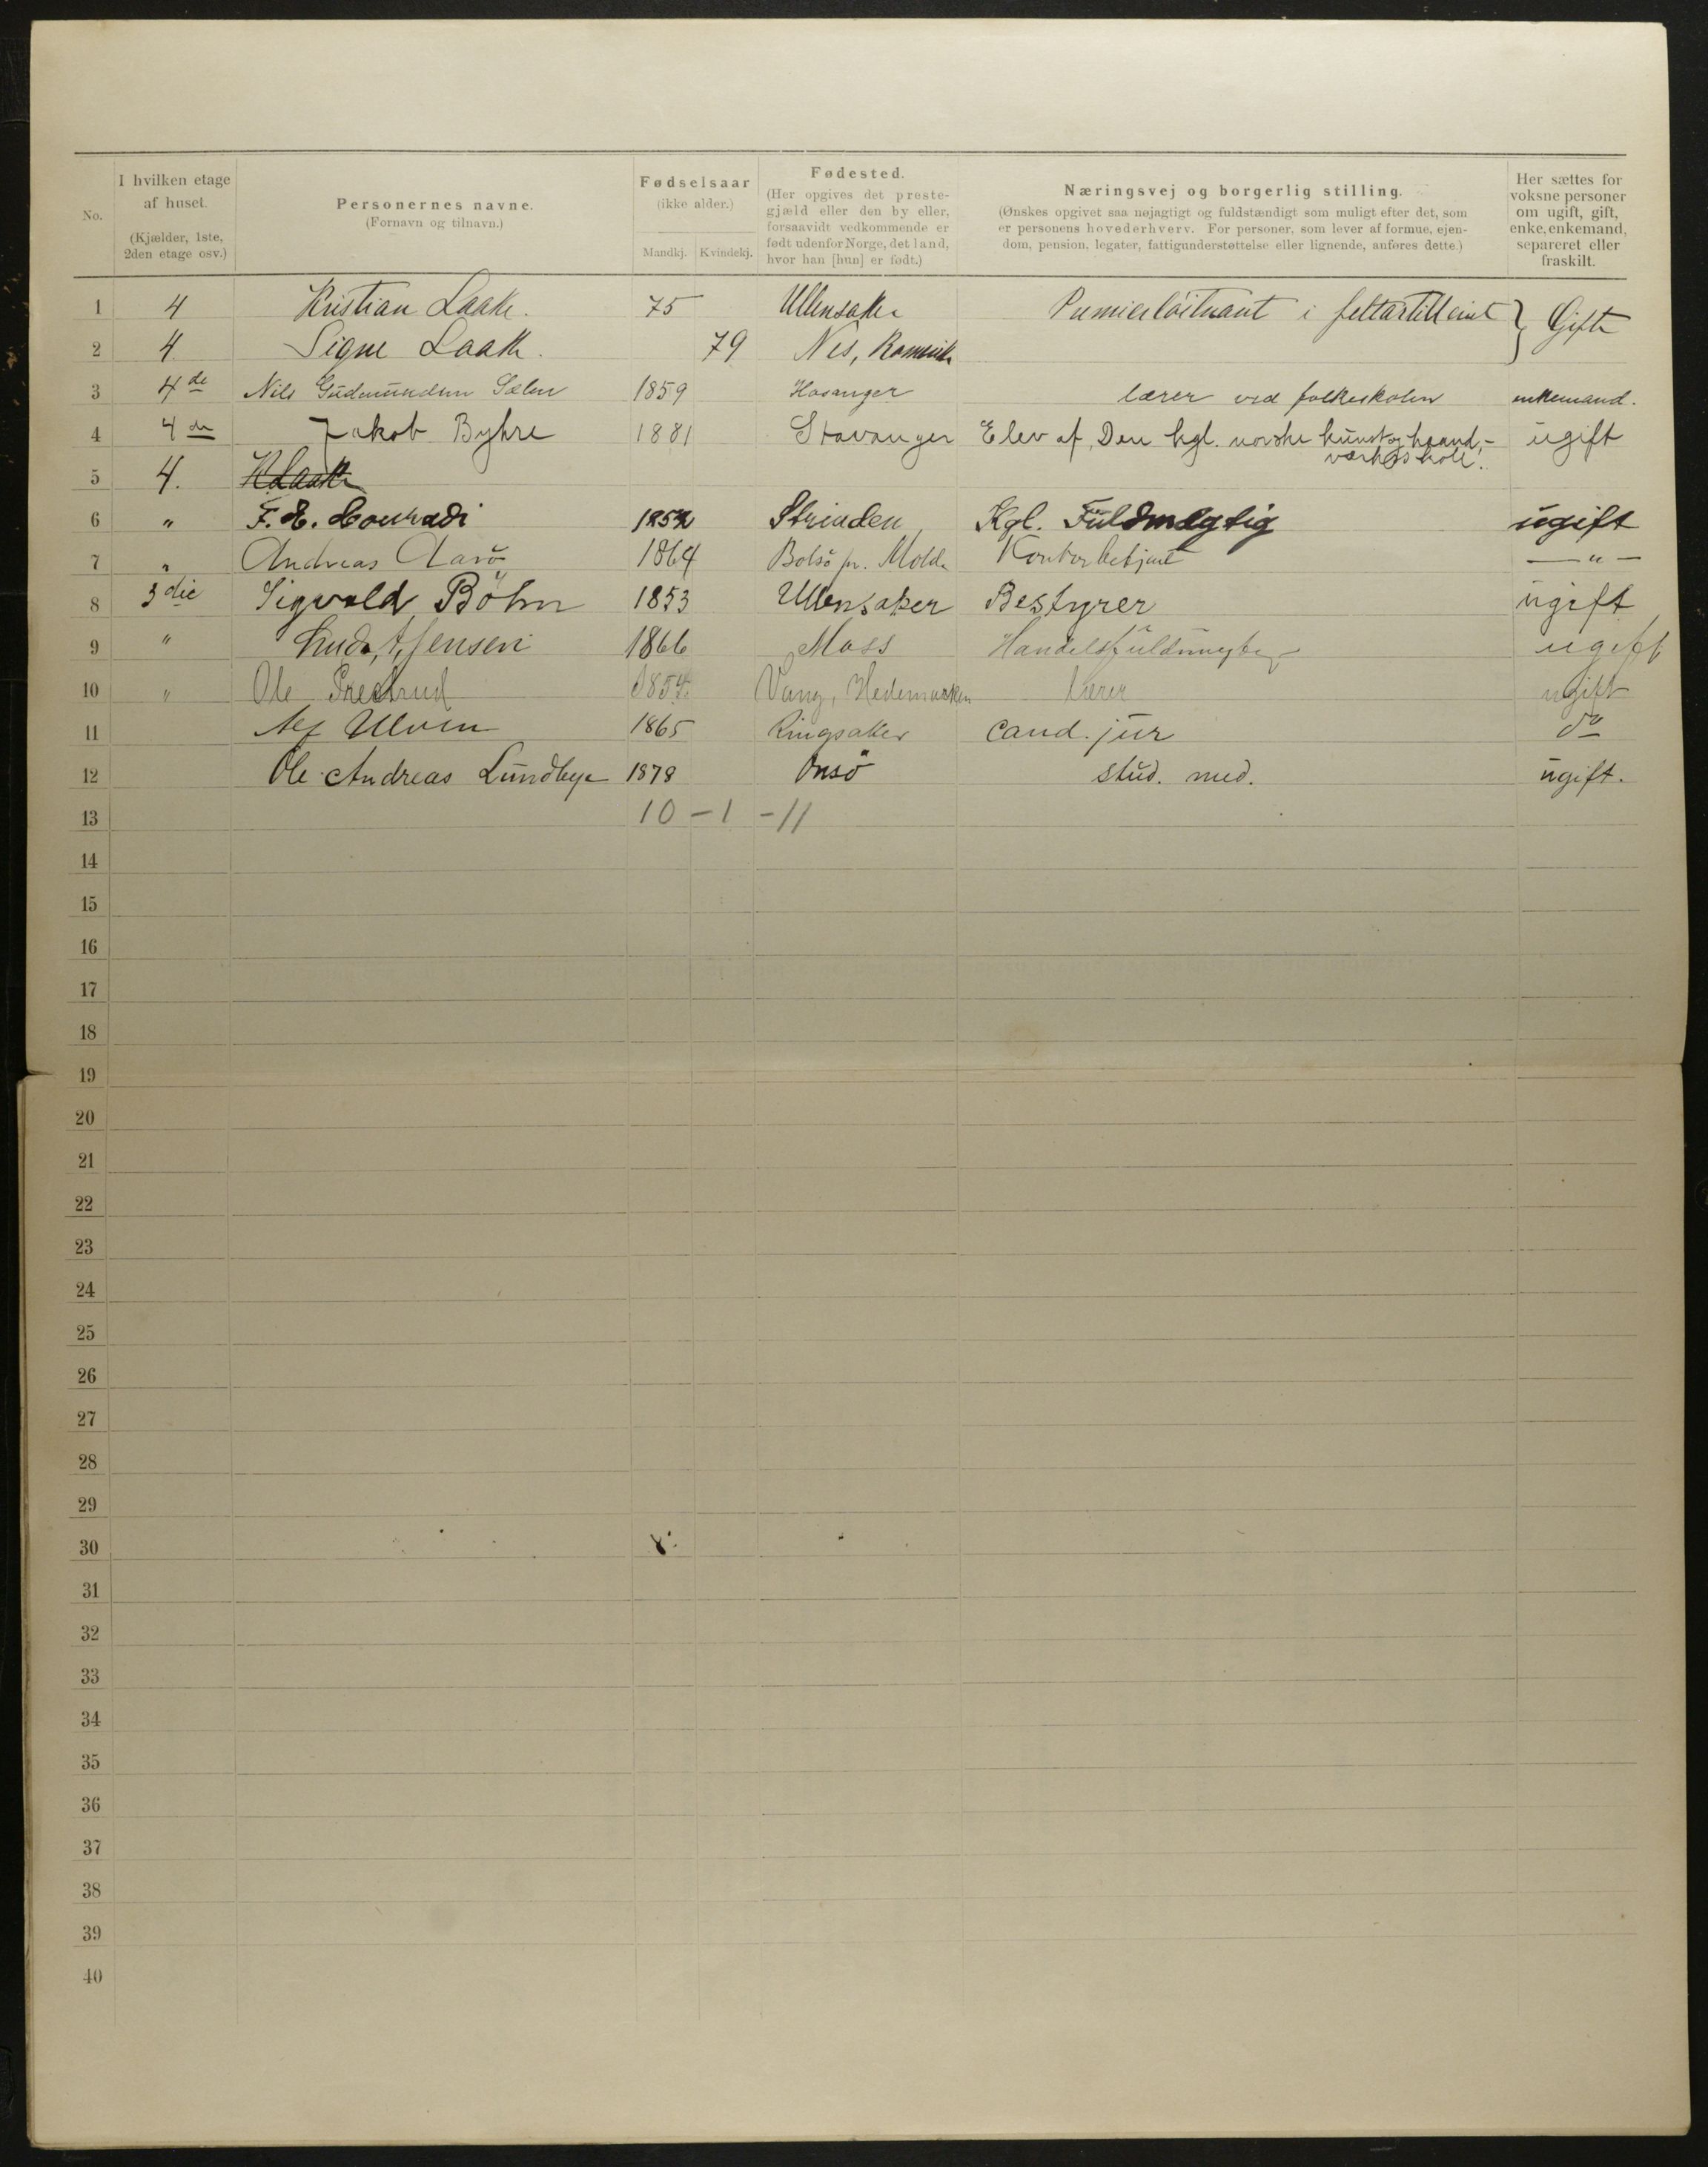 No.
I hvilken etage af huset. (Kjælder, 1ste, 2den etage osv.)
Personernes navne. (Fornavn og tilnavn.)
Fødselsaar (ikke alder.) Mandkj. Kvindekj.
Fødested. (Her opgives det prestegjæld eller den by eller, forsaavidt vedkommende er født udenfor Norge, det land, hvor han [hun] er født.)
Næringsvej og borgerlig stilling. (Ønskes opgivet saa nøjagtigt og fuldstændigt som muligt efter det, som er personens hovederhverv. For personer, som lever af formue, ejendom, pension, legater, fattigunderstøttelse eller lignende, anføres dette.)
Her sættes for voksne personer om ugift, gift, enke, enkemand, separeret eller fraskilt.
1 4 Kristian Laake. 75 Ullensaker Premierløitnant i feltartilleriet } Gifte
2 4 Signe Laake. 79 Nes, Romerike
3 4de Nils Gudmundsen Sælen 1859 Hosanger lærer ved folkeskolen enkemand.
4 4de Jakob Byhre 1881 Stavanger Elev af Den kgl. norske kunst og haand-
værksskole. ugift
5 4. K Laake
6 " F. E. Conradi 1852 Strinden Kgl. Fuldmægtig ugift
7 " Andreas Aarö 1864 Bolsö pr. Molde Kontorbetjent — " —
8 3die Sigvald Böhn 1853 Ullensaker Bestyrer ugift
9 " Ludv. A. Jensen 1866 Moss Handelsfuldmægtig ugift
10 " Ole Prestrud Vang, Hedemarken lærer ugift
11 Ulven 1865 Ringsaker cand. jur do
12 Ole Andreas Lundbye 1878 Onsö stud. med. ugift.
13 10 - 1 - 11
14
15
16
17
18
19
20
21
22
23
24
25
26
27
28
29
30
31
32
33
34
35
36
37
38
39
40